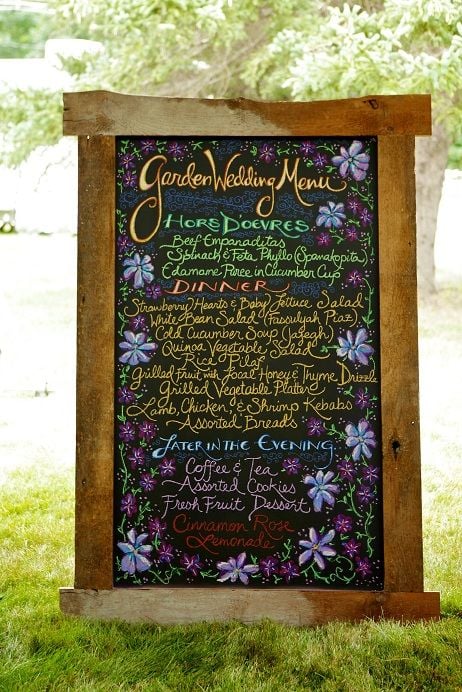 Garden Wedding Menu
Hors D'oevres
Beef Empanaditas
Spinach & Feta Phyllo (Spanakopita)
Edamame Puree in Cucumber Cup
Dinner
Strawberry, Hearts & Baby Lettuce Salad
White Bean Salad (Fassulyah Piaz)
Cold Cucumber Soup (Jajegh)
Quinoa Vegetable Salad
Rice Pilaf
Grilled Fruit with Local Honey & Thyme Drizzle
Grilled Vegetable Platter
Lamb, Chicken, & Shrimp Kebabs
Assorted Breads
Later in the Evening
Coffee & Tea
Assorted Cookies
Fresh Fruit Dessert
Cinnamon Rose
Lemonade